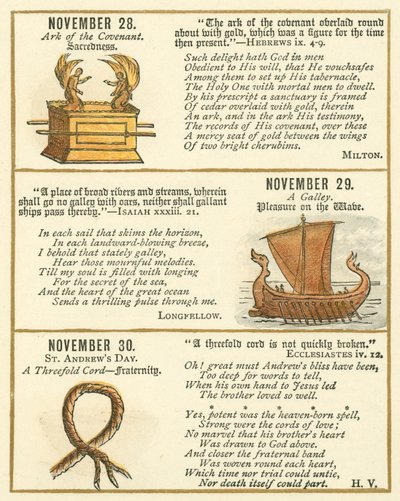 NOVEMBER 28.
Ark of the Covenant.
Sacredness.
"The ark of the covenant overlaid round
about with gold, which was a figure for the time
then present."—HEBREWS ix. 4-9.
Such delight hath God in men
Obedient to His will, that He vouchsafes
Among them to set up His tabernacle,
The Holy One with mortal men to dwell.
By his prescript a sanctuary is framed
Of cedar overlaid with gold, therein
An ark, and in the ark His testimony,
The records of His covenant, over these
A mercy seat of gold between the wings
Of two bright cherubims.
MILTON.
"A place of broad rivers and streams, wherein
shall go no galley with oars, neither shall gallant
ships pass thereby."—ISAIAH xxxiii. 21.
In each sail that skims the horizon,
In each landward-blowing breeze,
I behold that stately galley,
Hear those mournful melodies.
Till my soul is filled with longing
For the secret of the sea,
And the heart of the great ocean
Sends a thrilling pulse through me.
LONGFELLOW.
NOVEMBER 29.
A Galley.
Pleasure on the Wave.
NOVEMBER 30.
ST. ANDREW'S DAY.
A Threefold Cord—Fraternity.
"A threefold cord is not quickly broken."
ECCLESIASTES iv. 12.
Oh! great must Andrew's bliss have been,
Too deep for words to tell,
When his own hand to Jesus led
The brother loved so well.
* * * * *
Yes, potent was the heaven-born spell,
Strong were the cords of love;
No marvel that his brother's heart
Was drawn to God above.
And closer the fraternal band
Was woven round each heart,
Which time nor trial could untie,
Nor death itself could part. H. V.